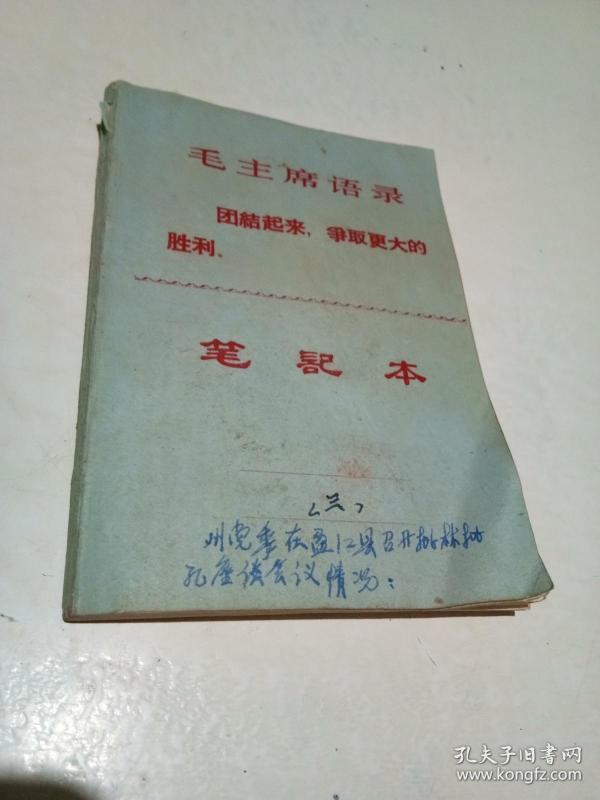 毛主席语录
团結起来，爭取更大的
胜利。
笔記本
〈兰〉
州党委在盈江县召开批林批
孔座谈会议情况：
孔夫子旧书网
www.kongfz.com